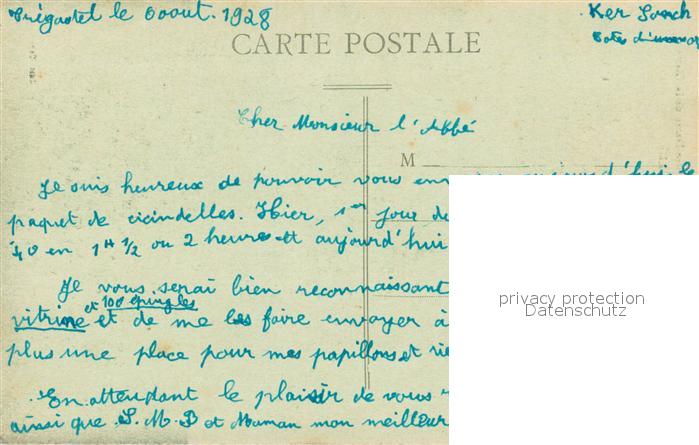 Trégastel le 6 aout. 1928
Ker
CARTE POSTALE
Cher Monsieur l'Abbé
M
Je suis heureux de pouvoir vous en aujourd'hui le
paquet de cicindelles. Hier, 1er jour de
40 en 1H 1/2 ou 2 heures et aujourd'hui
Je vous serai bien reconnaissant
et 100 épingles
vitrine et de me les faire envoyer à
plus une place pour mes papillons et
En attendant le plaisir de vous
ainsi que S. M. B et Maman mon meilleur
privacy protection
Datenschutz